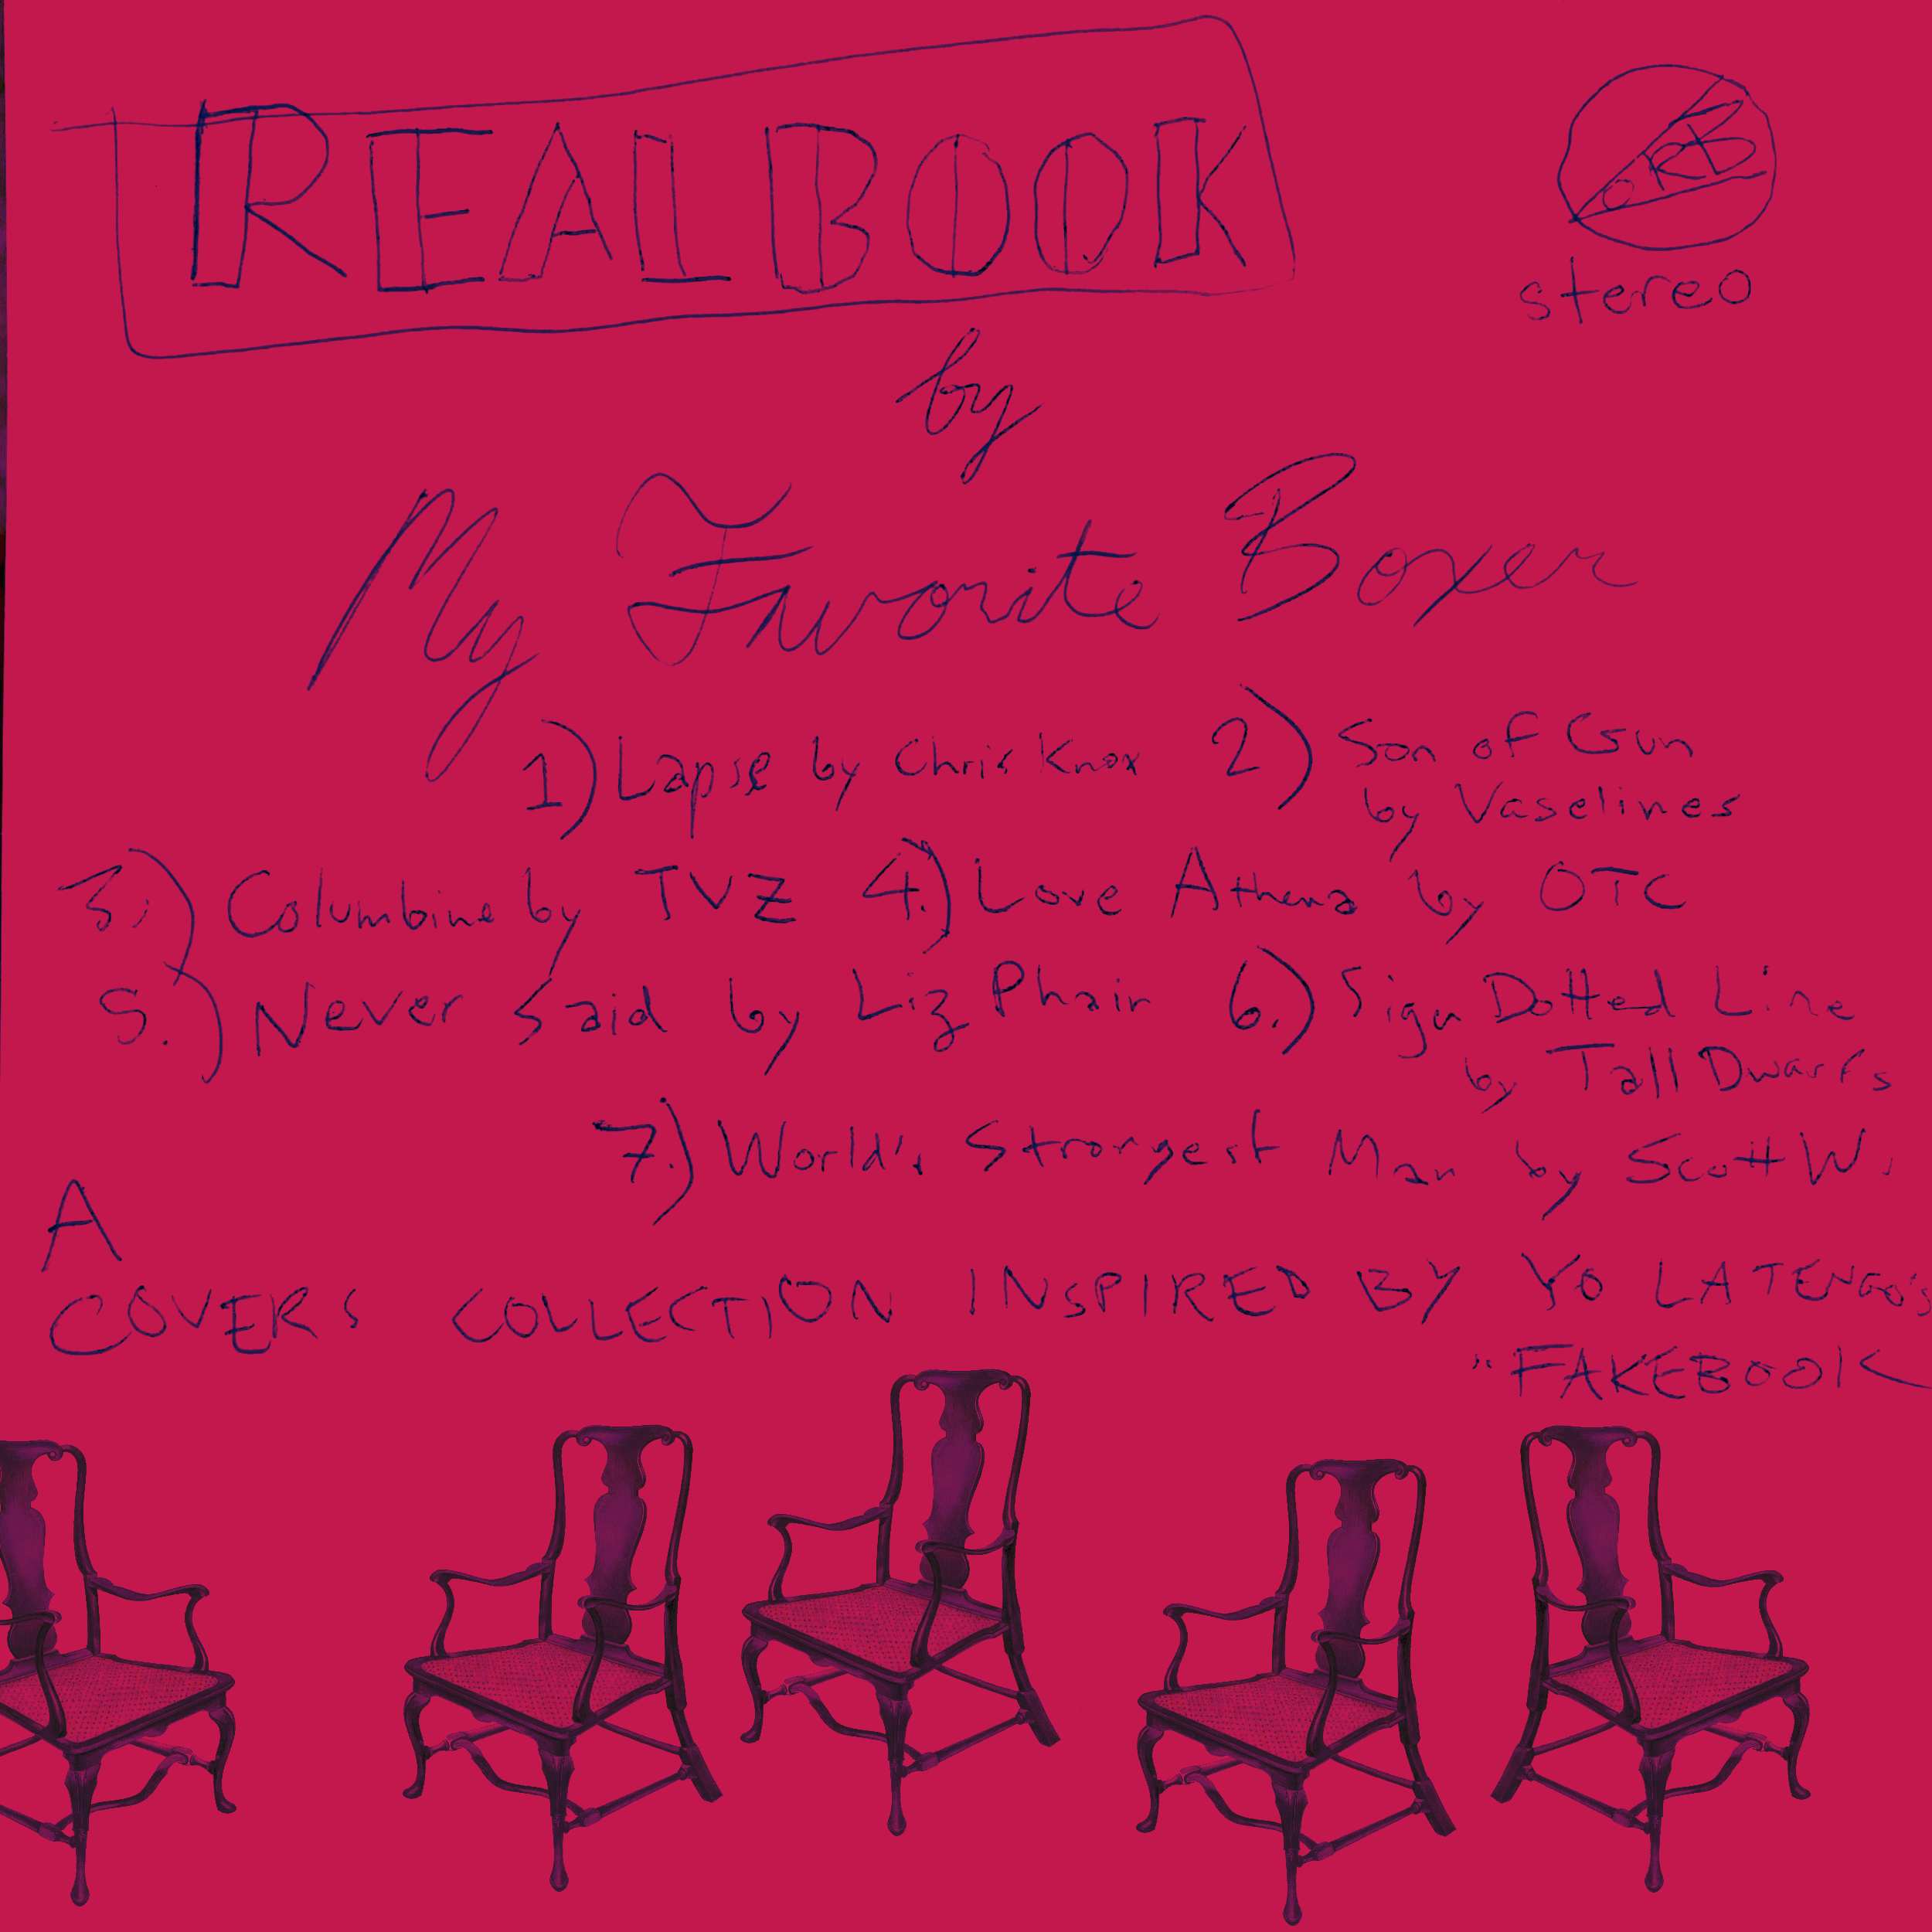 REAL BOOK
stereo
by
My Favorite Boxer
1) Lapse by Chris Knox 2) Son of Gun
by Vaselines
3.) Columbine by TVZ 4.) Love Athena by OTC
5.) Never Said by Liz Phair 6.) Sign Dotted Line
by Tall Dwarfs
7.) World's Strongest Man by Scott W.
A
COVERS COLLECTION INSPIRED BY YO LA TENGO'S
"FAKEBOOK